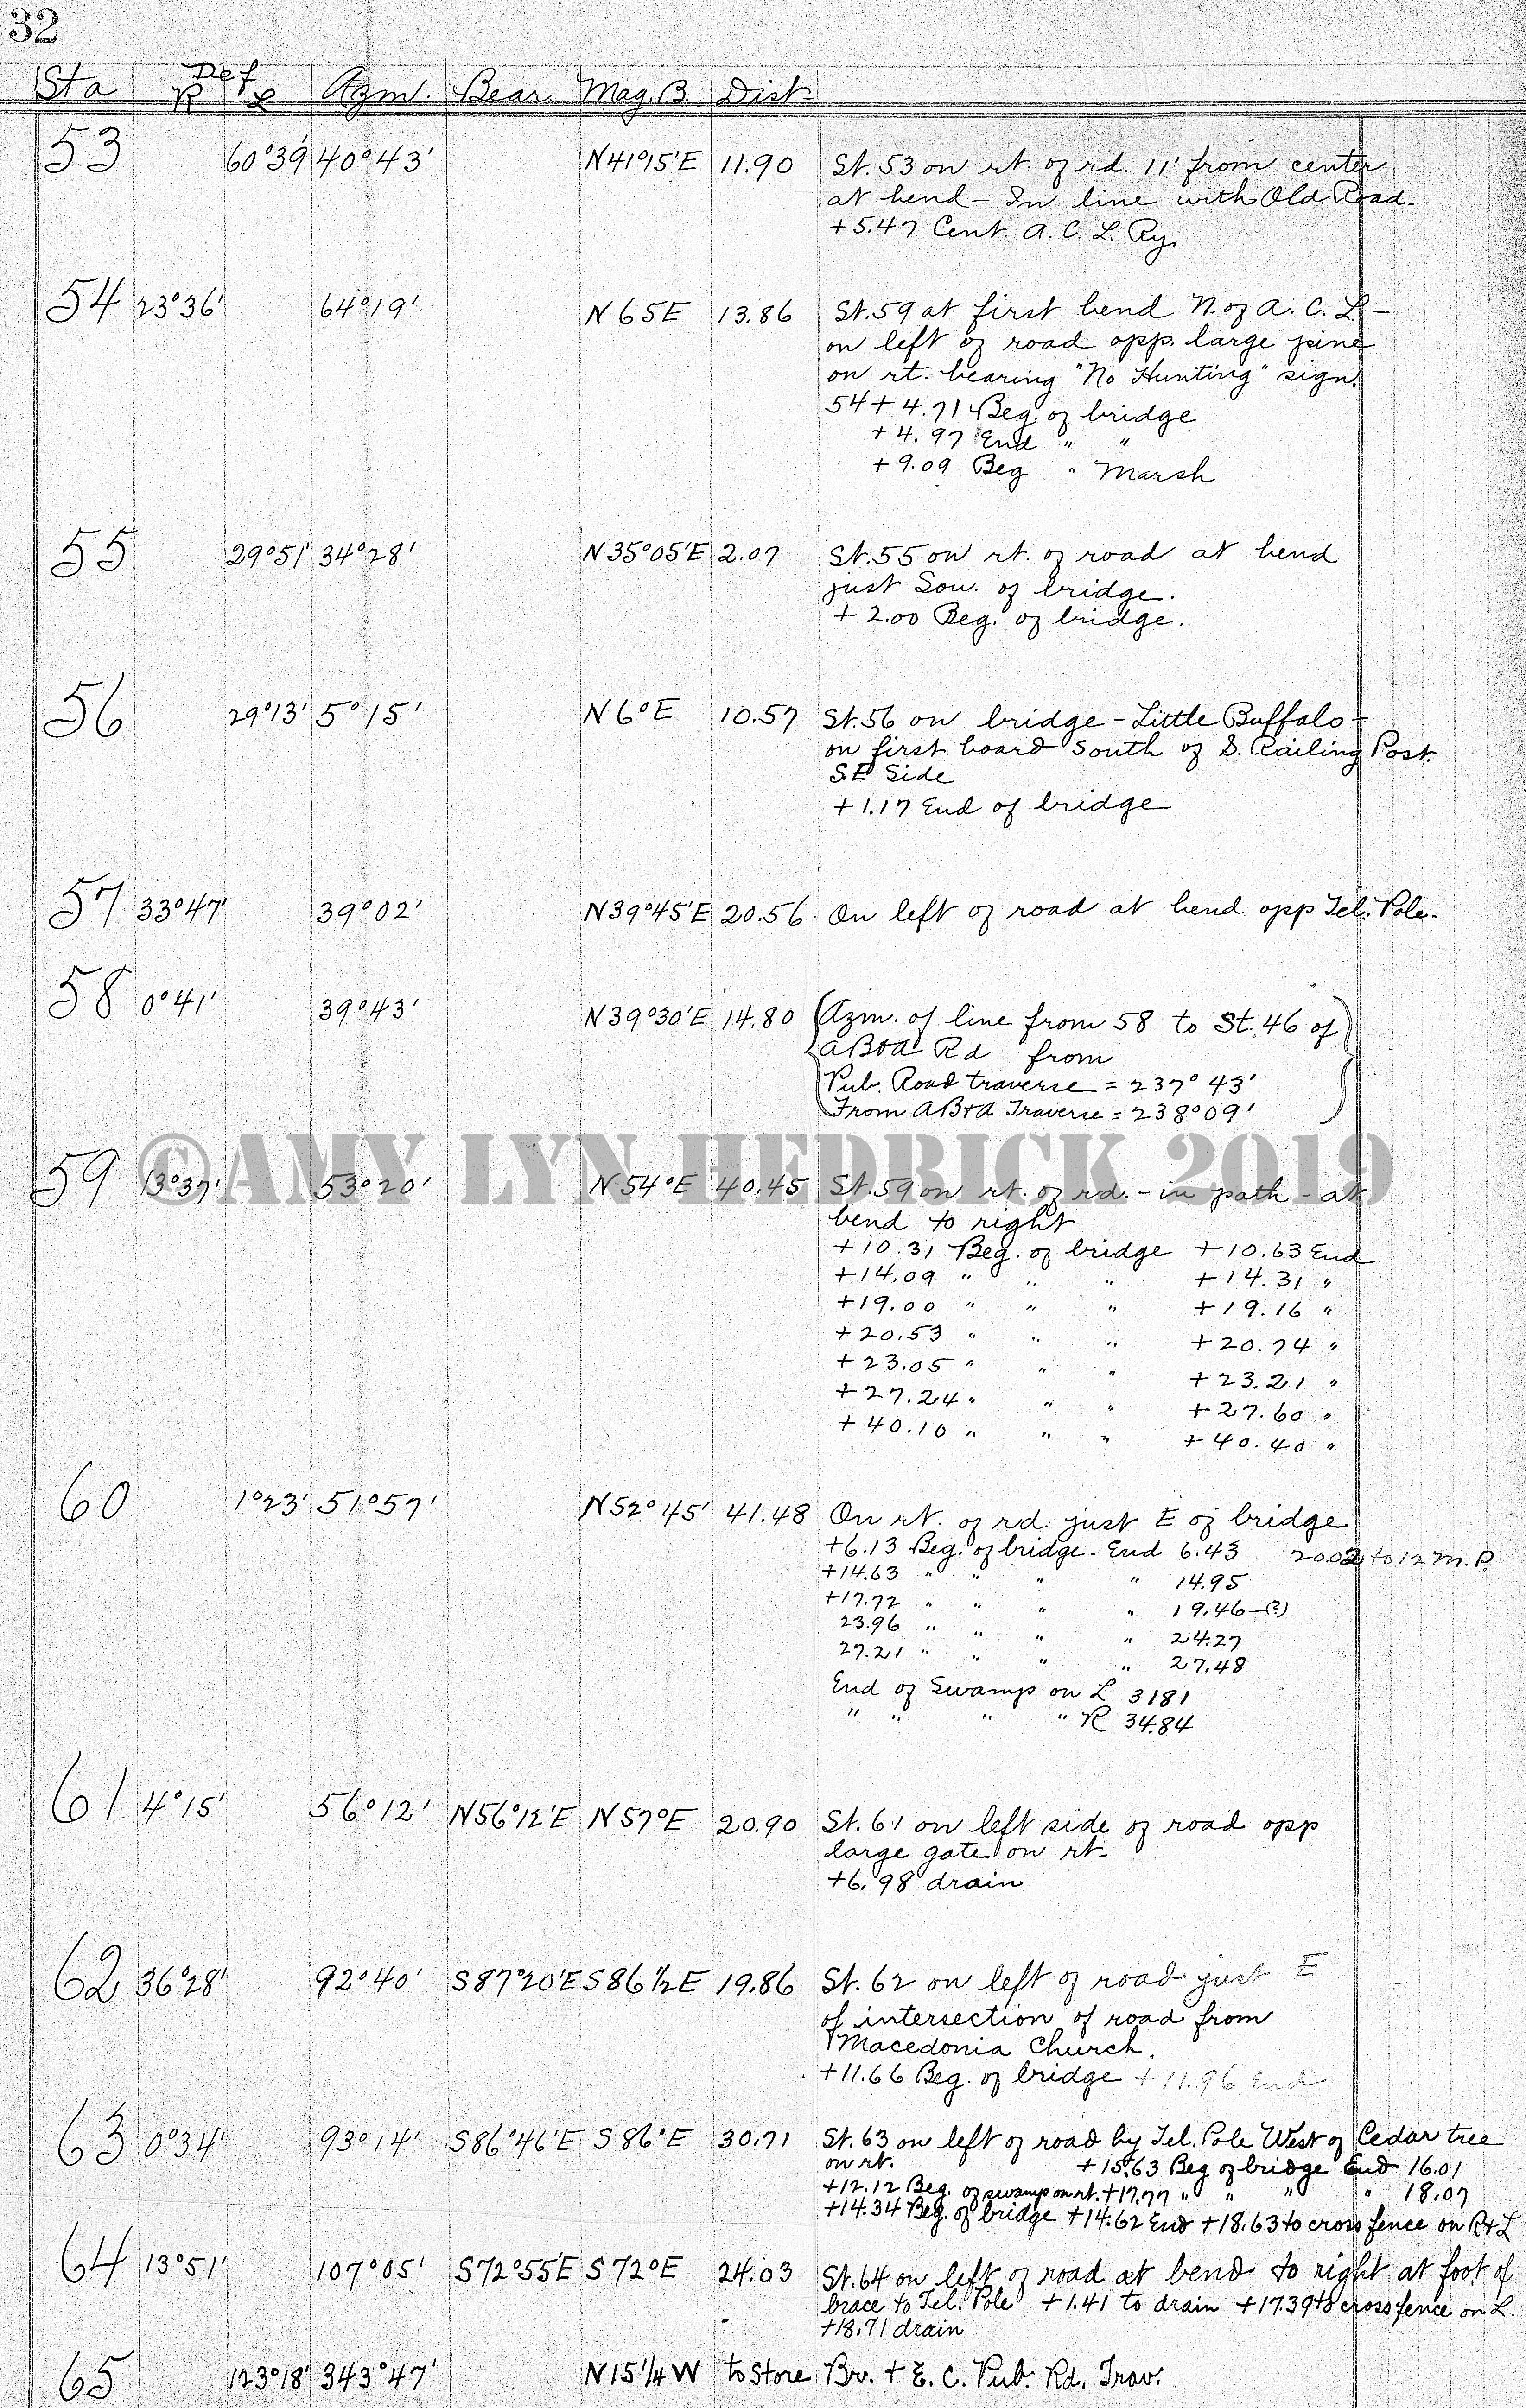 32
Sta Def R L Azm. Bear. Mag. B. Dist
53 60°39' 40°43' N41°15'E 11.90 St. 53 on rt. of rd. 11' from center
at bend - In line with Old Road.
+5.47 Cent. A. C. L. Ry.
54 23°36' 64°19' N65E 13.86 St. 59 at first bend N. of A. C. L. -
on left of road opp. large pine
on rt. bearing "No Hunting" sign.
54 + 4.71 Beg. of bridge
+ 4.97 End " "
+ 9.09 Beg " Marsh
55 29°51' 34°28' N35°05'E 2.07 St. 55 on rt. of road at bend
just Sou. of bridge.
+ 2.00 Beg. of bridge.
56 29°13' 5°15' N6°E 10.57 St. 56 on bridge - Little Buffalo -
on first board south of S. Railing Post.
S.E Side
+1.17 End of bridge
57 33°47' 39°02' N39°45'E 20.56 On left of road at bend opp Tel. Pole.
58 0°41' 39°43' N39°30'E 14.80 Azm. of line from 58 to St. 46 of
AB+A Rd from
Pub. Road traverse = 237° 43'
From AB+A Traverse = 238°09'
©AMY LYN HEDRICK 2019
59 13°37' 53°20' N54°E 40.45 St. 59 on rt. of rd. - in path - at
bend to right
+10.31 Beg. of bridge +10.63 End
+14.09 " " " +14.31 "
+19.00 " " " +19.16 "
+20.53 " " " +20.74 "
+23.05 " " " +23.21 "
+27.24 " " " +27.60 "
+40.10 " " " +40.40 "
60 1°23' 51°57' N52°45' 41.48 On rt. of rd. just E of bridge
+6.13 Beg. of bridge - End 6.43 20.02 to 12 M. P.
+14.63 " " " " 14.95
+17.72 " " " " 19.46-(?)
23.96 " " " " 24.27
27.21 " " " " 27.48
End of Swamp on L 3181
" " " " R 34.84
61 4°15' 56°12' N56°12'E N57°E 20.90 St. 61 on left side of road opp
large gate on rt.
+6.98 drain
62 36°28' 92°40' S87°20'E S86 1/2 E 19.86 St. 62 on left of road just E
of intersection of road from
Macedonia Church.
+11.66 Beg. of bridge +11.96 End
63 0°34' 93°14' S86°46'E S86°E 30.71 St. 63 on left of road by Tel. Pole West of Cedar tree
on rt. +15.63 Beg of bridge End 16.01
+12.12 Beg. of swamp on rt. +17.77 " " " " 18.07
+14.34 Beg. of bridge +14.62 End +18.63 to cross fence on R+L
64 13°51' 107°05' S72°55'E S72°E 24.03 St. 64 on left of road at bend to right at foot of
brace to Tel. Pole +1.41 to drain +17.39 to cross fence on L.
+18.71 drain
65 123°18' 343°47' N15 1/4 W to Store Br. + E. C. Pub. Rd. Trav.